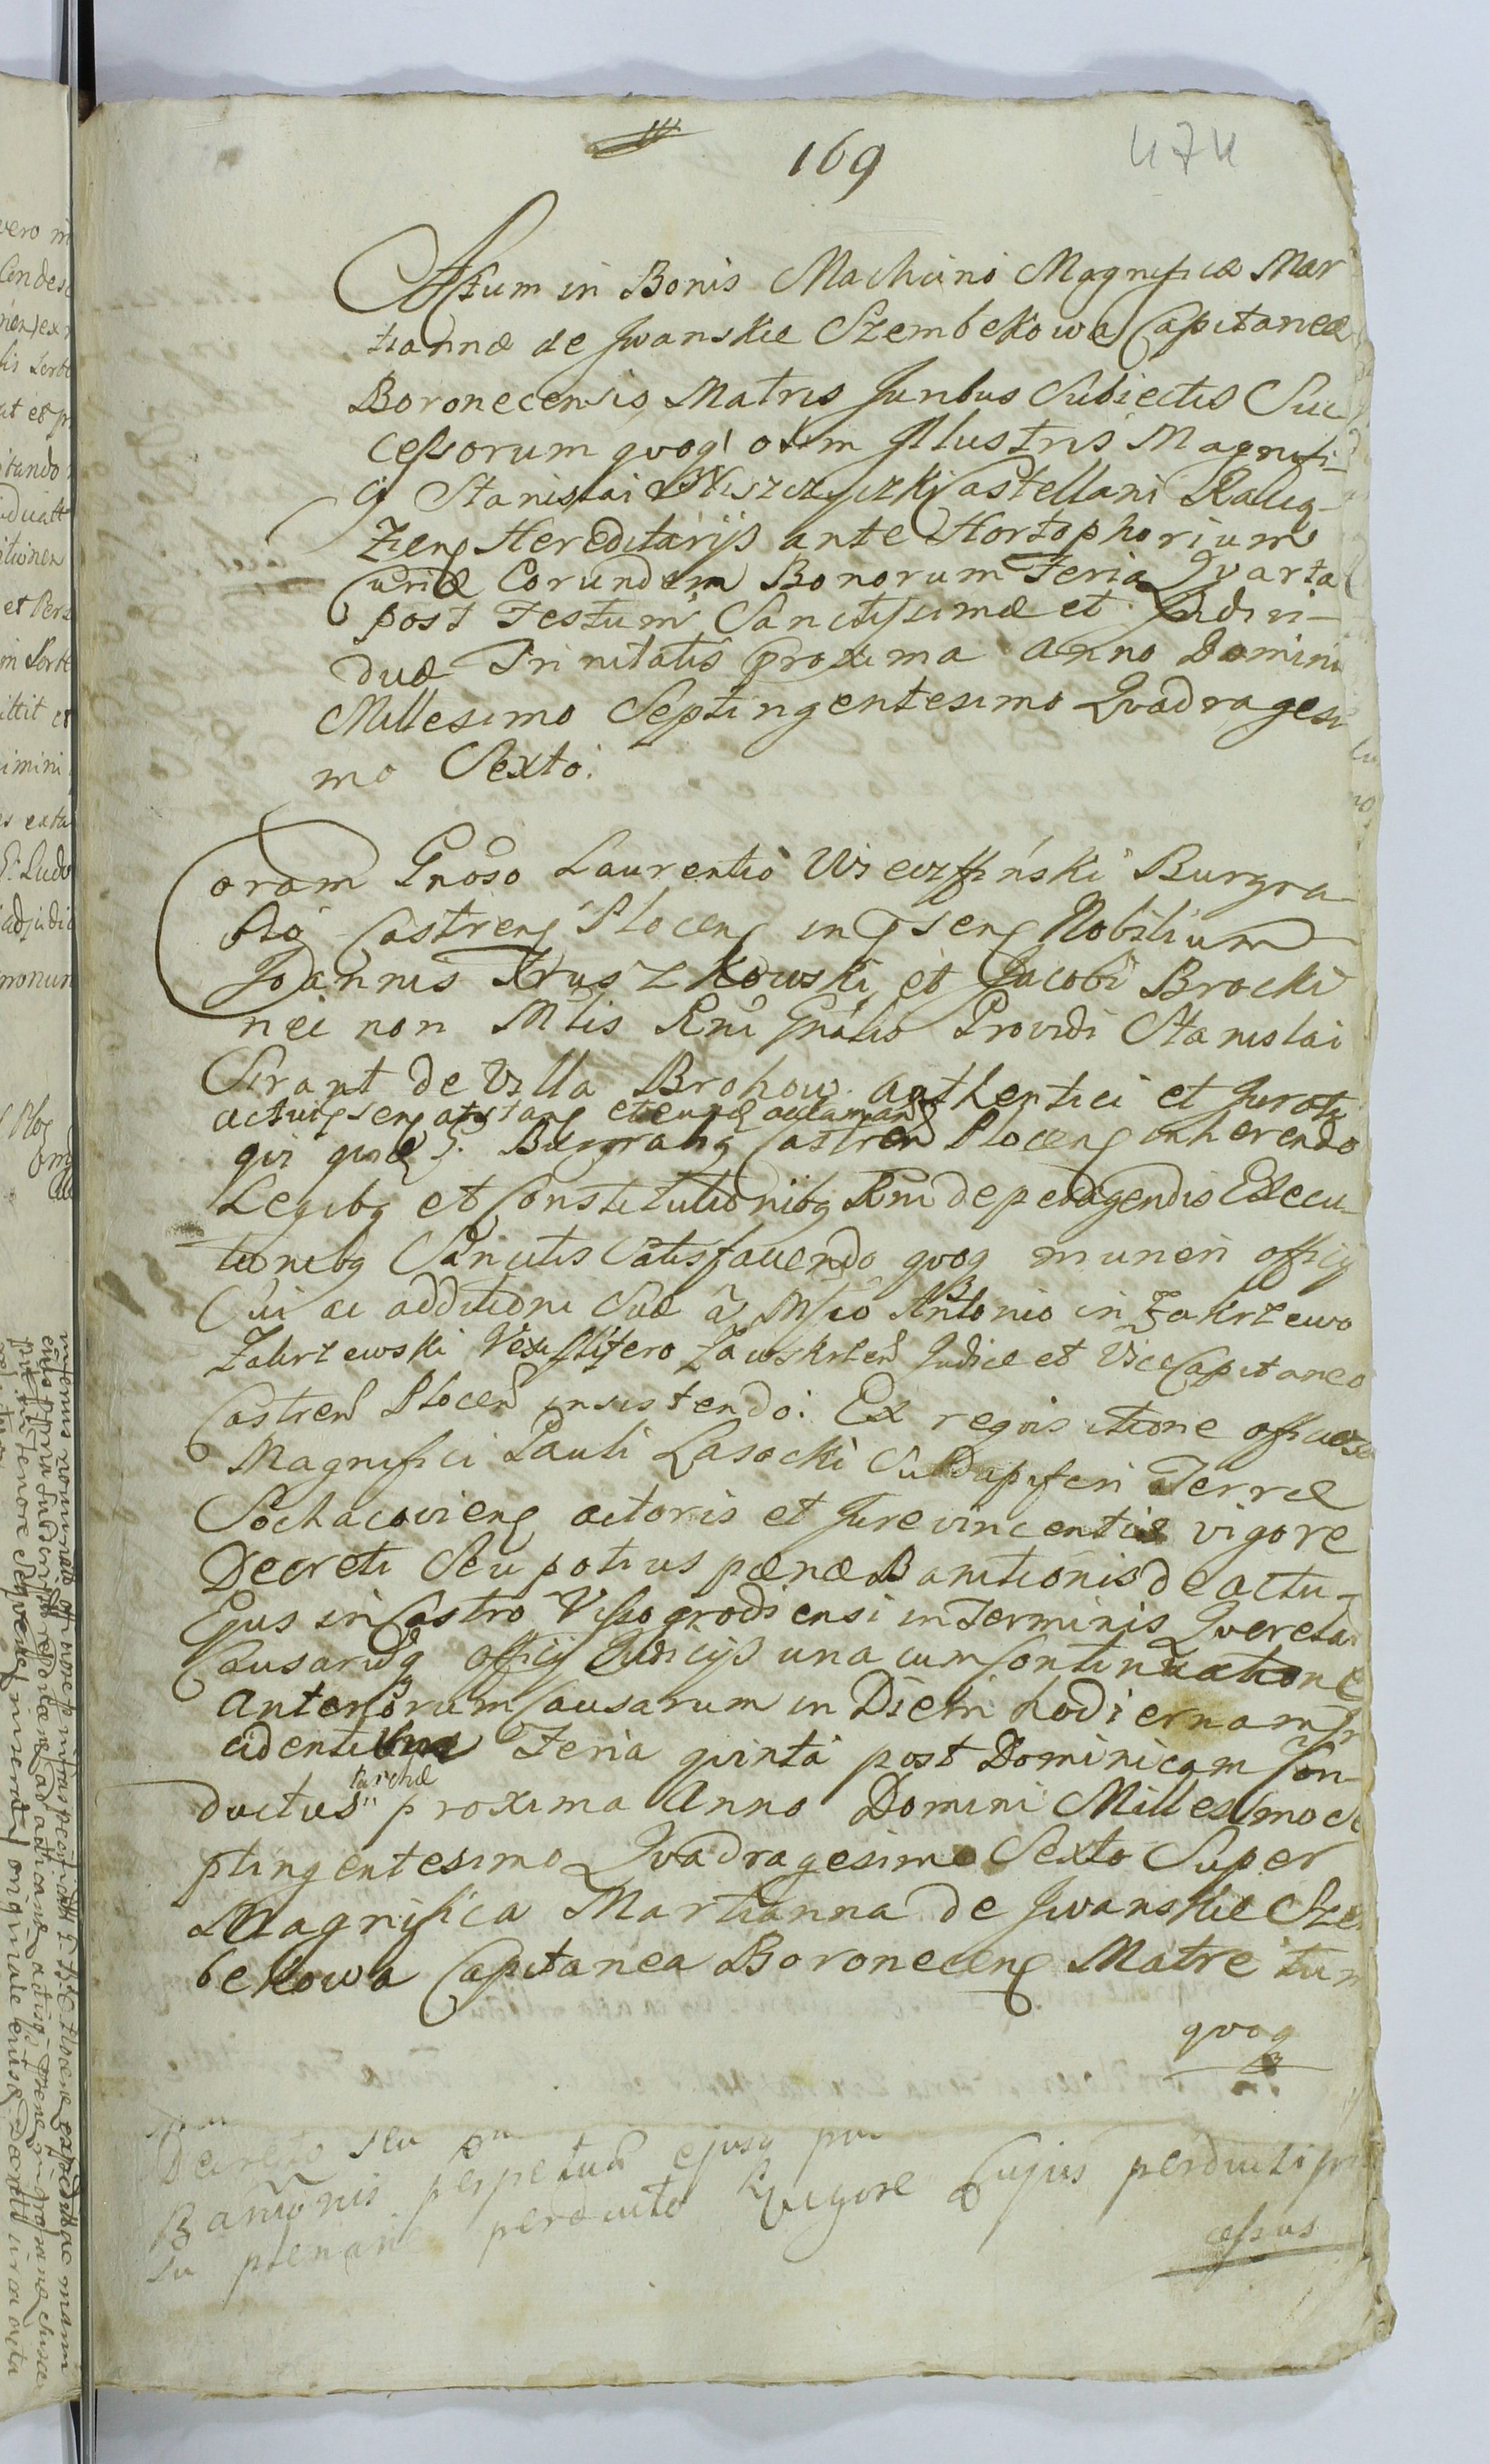 169
474
Actum in Bonis Machcino Magnificæ Mar
tiannæ de Jwanskie Szembekowa Capitaneæ
Boronecensis Matris Juribus Subiectis Suc
cessorum quoq olim Jllustris Magnifi-
ci Stanislai Castellani Racią-
zens Hereditarijs ante Hortophorium
Curiæ Eorundem Bonorum Feria Qvarta
post Festum Sanctissimæ et Jndivi-
duæ Trinitatis proxima anno Domini
Millesimo Septingentesimo Qvadragesi
mo Sexto.
Coram Gnoso Laurentio Burgra-
bio Castrens Plocens in psens Nobilium
Joannis Truszkowski et Jacobi Brocki
nec non Mtlis Rni Gnalis Providi Stanislai
Sirant de Villa Brohow authentici et Jurati
actuiq sens atstans acclamans
qui quidē G. Burgrabiq Castren Plocens inherendo
Legibq et Constitutionibq Rni de peragendis Execu-
tionibq Sancitis Satisfaciendo quoq muneri officij
Sui ac additioni Suæ â Mfco Antonio in Zakrzewo
Zakrzewski Vexillifero Zawskrzen Judice et Vice Capitaneo
Castren Plocen insistendo. Ex reqvisitione officiosa
Magnifici Pauli Lasocki SubDapiferi Terræ
Sochacoviens actoris et Jurevincentis vigore
Decreti Seu potius pœnæ Banitionis de actu
Ejus in Castro Vissogrodiensi in Terminis Querelar
Causarūq officij Judicijs una cum Continuatione
Anteriorum Causarum in Diem hodiernam Jn
cidentibus Feria qvinta post Dominicam Con-
Paschæ
ductus" proxima Anno Domini Millesimo Se
ptingentesimo Qvadragesimo Sexto Super
Magnifica Martianna de Jwanskie Sze
bekowa Capitanea Boronecens Matre tum
qvoq
Decreto seu
Banionis perpetuæ ejusq
su plenarie perducto vigore Cujus perducti pro
cessus